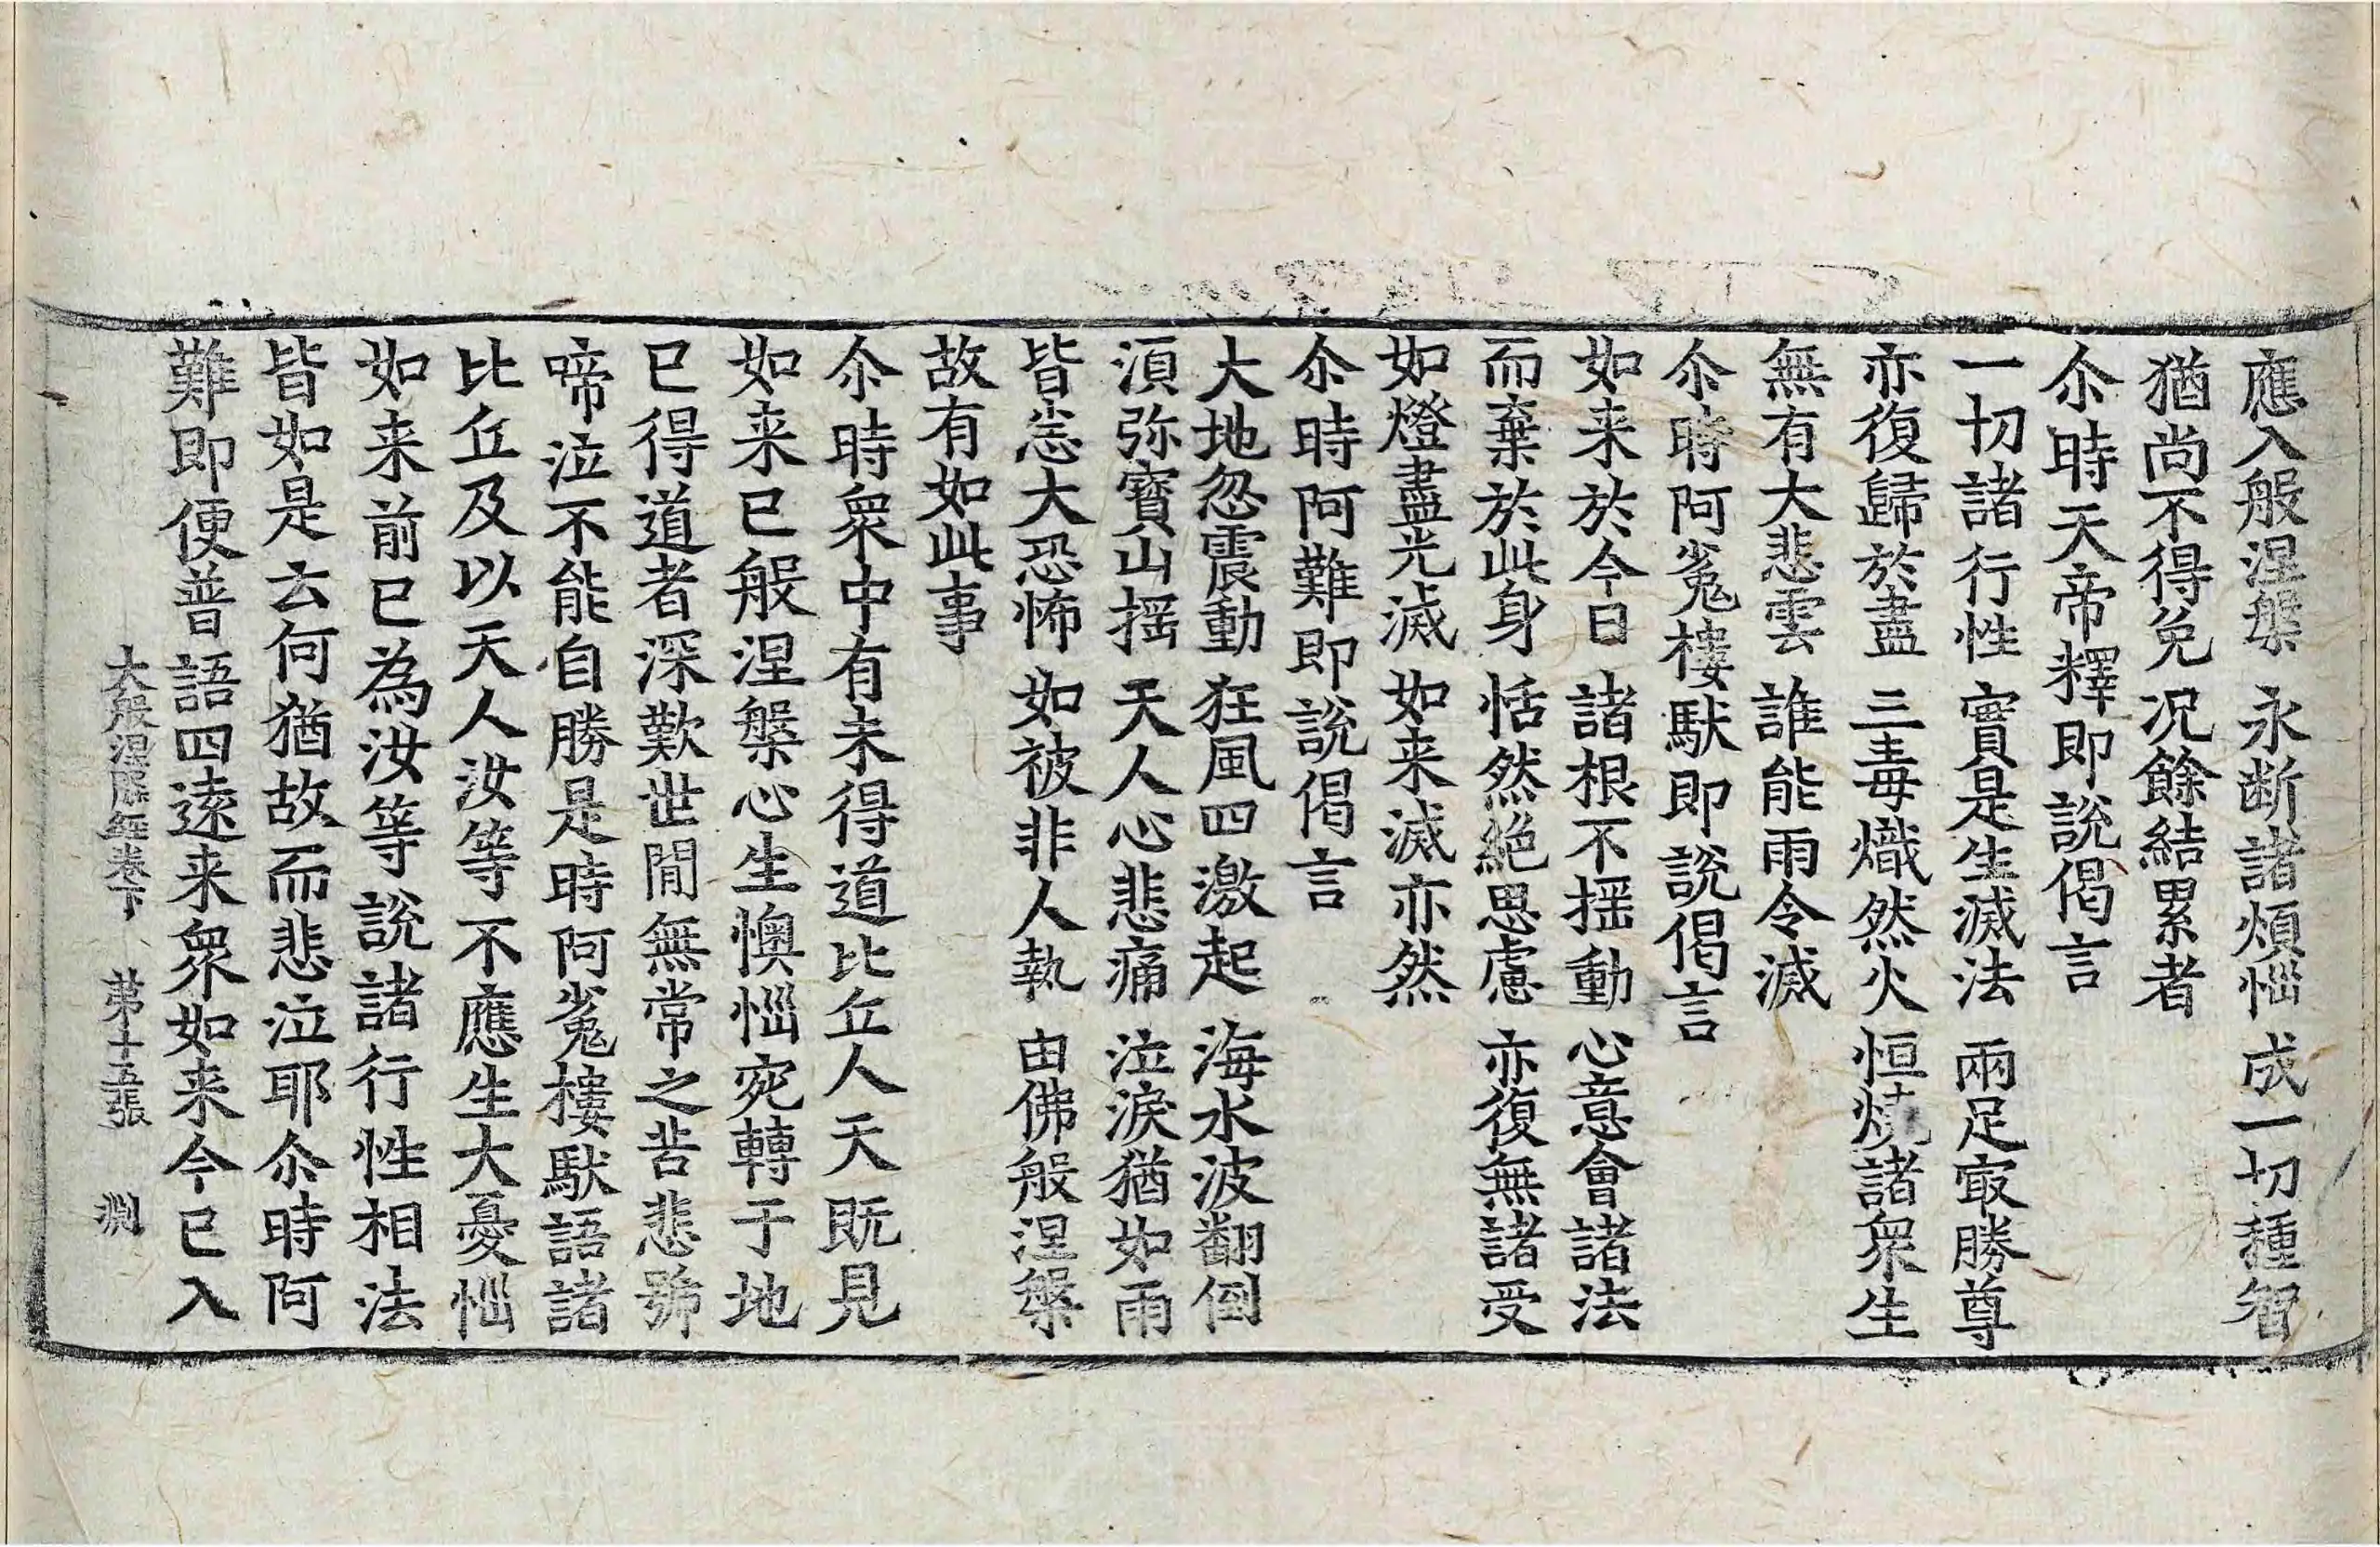 應入般涅槃 永断諸煩惱 成一切種智
猶尚不得免 况餘結累者
尒時天帝釋即說偈言
一切諸行性 實是生滅法 兩足㝡勝尊
亦復歸於盡 三毒熾然火 恒燒諸衆生
無有大悲雲 誰能雨令滅
尒時阿㝹樓馱即說偈言
如来於今日 諸根不揺動 心意會諸法
而棄於此身 恬然絶思慮 亦復無諸受
如燈盡光滅 如来滅亦然
尒時阿難即說偈言
大地忽震動 狂風四激起 海水波翻倒
湏弥寳山揺 天人心悲痛 泣淚猶如雨
皆悉大恐怖 如被非人執 由佛般涅槃
故有如此事
尒時衆中有未得道比丘人天既見
如来已般涅槃心生懊惱宛轉于地
已得道者深歎世閒無常之苦悲號
啼泣不能自勝是時阿㝹樓馱語諸
比丘及以天人汝等不應生大憂惱
如来前已為汝等說諸行性相法
皆如是云何猶故而悲泣耶尒時阿
難即便普語四逺来衆如来今已入
大般涅槃經卷下 第十五張 渕